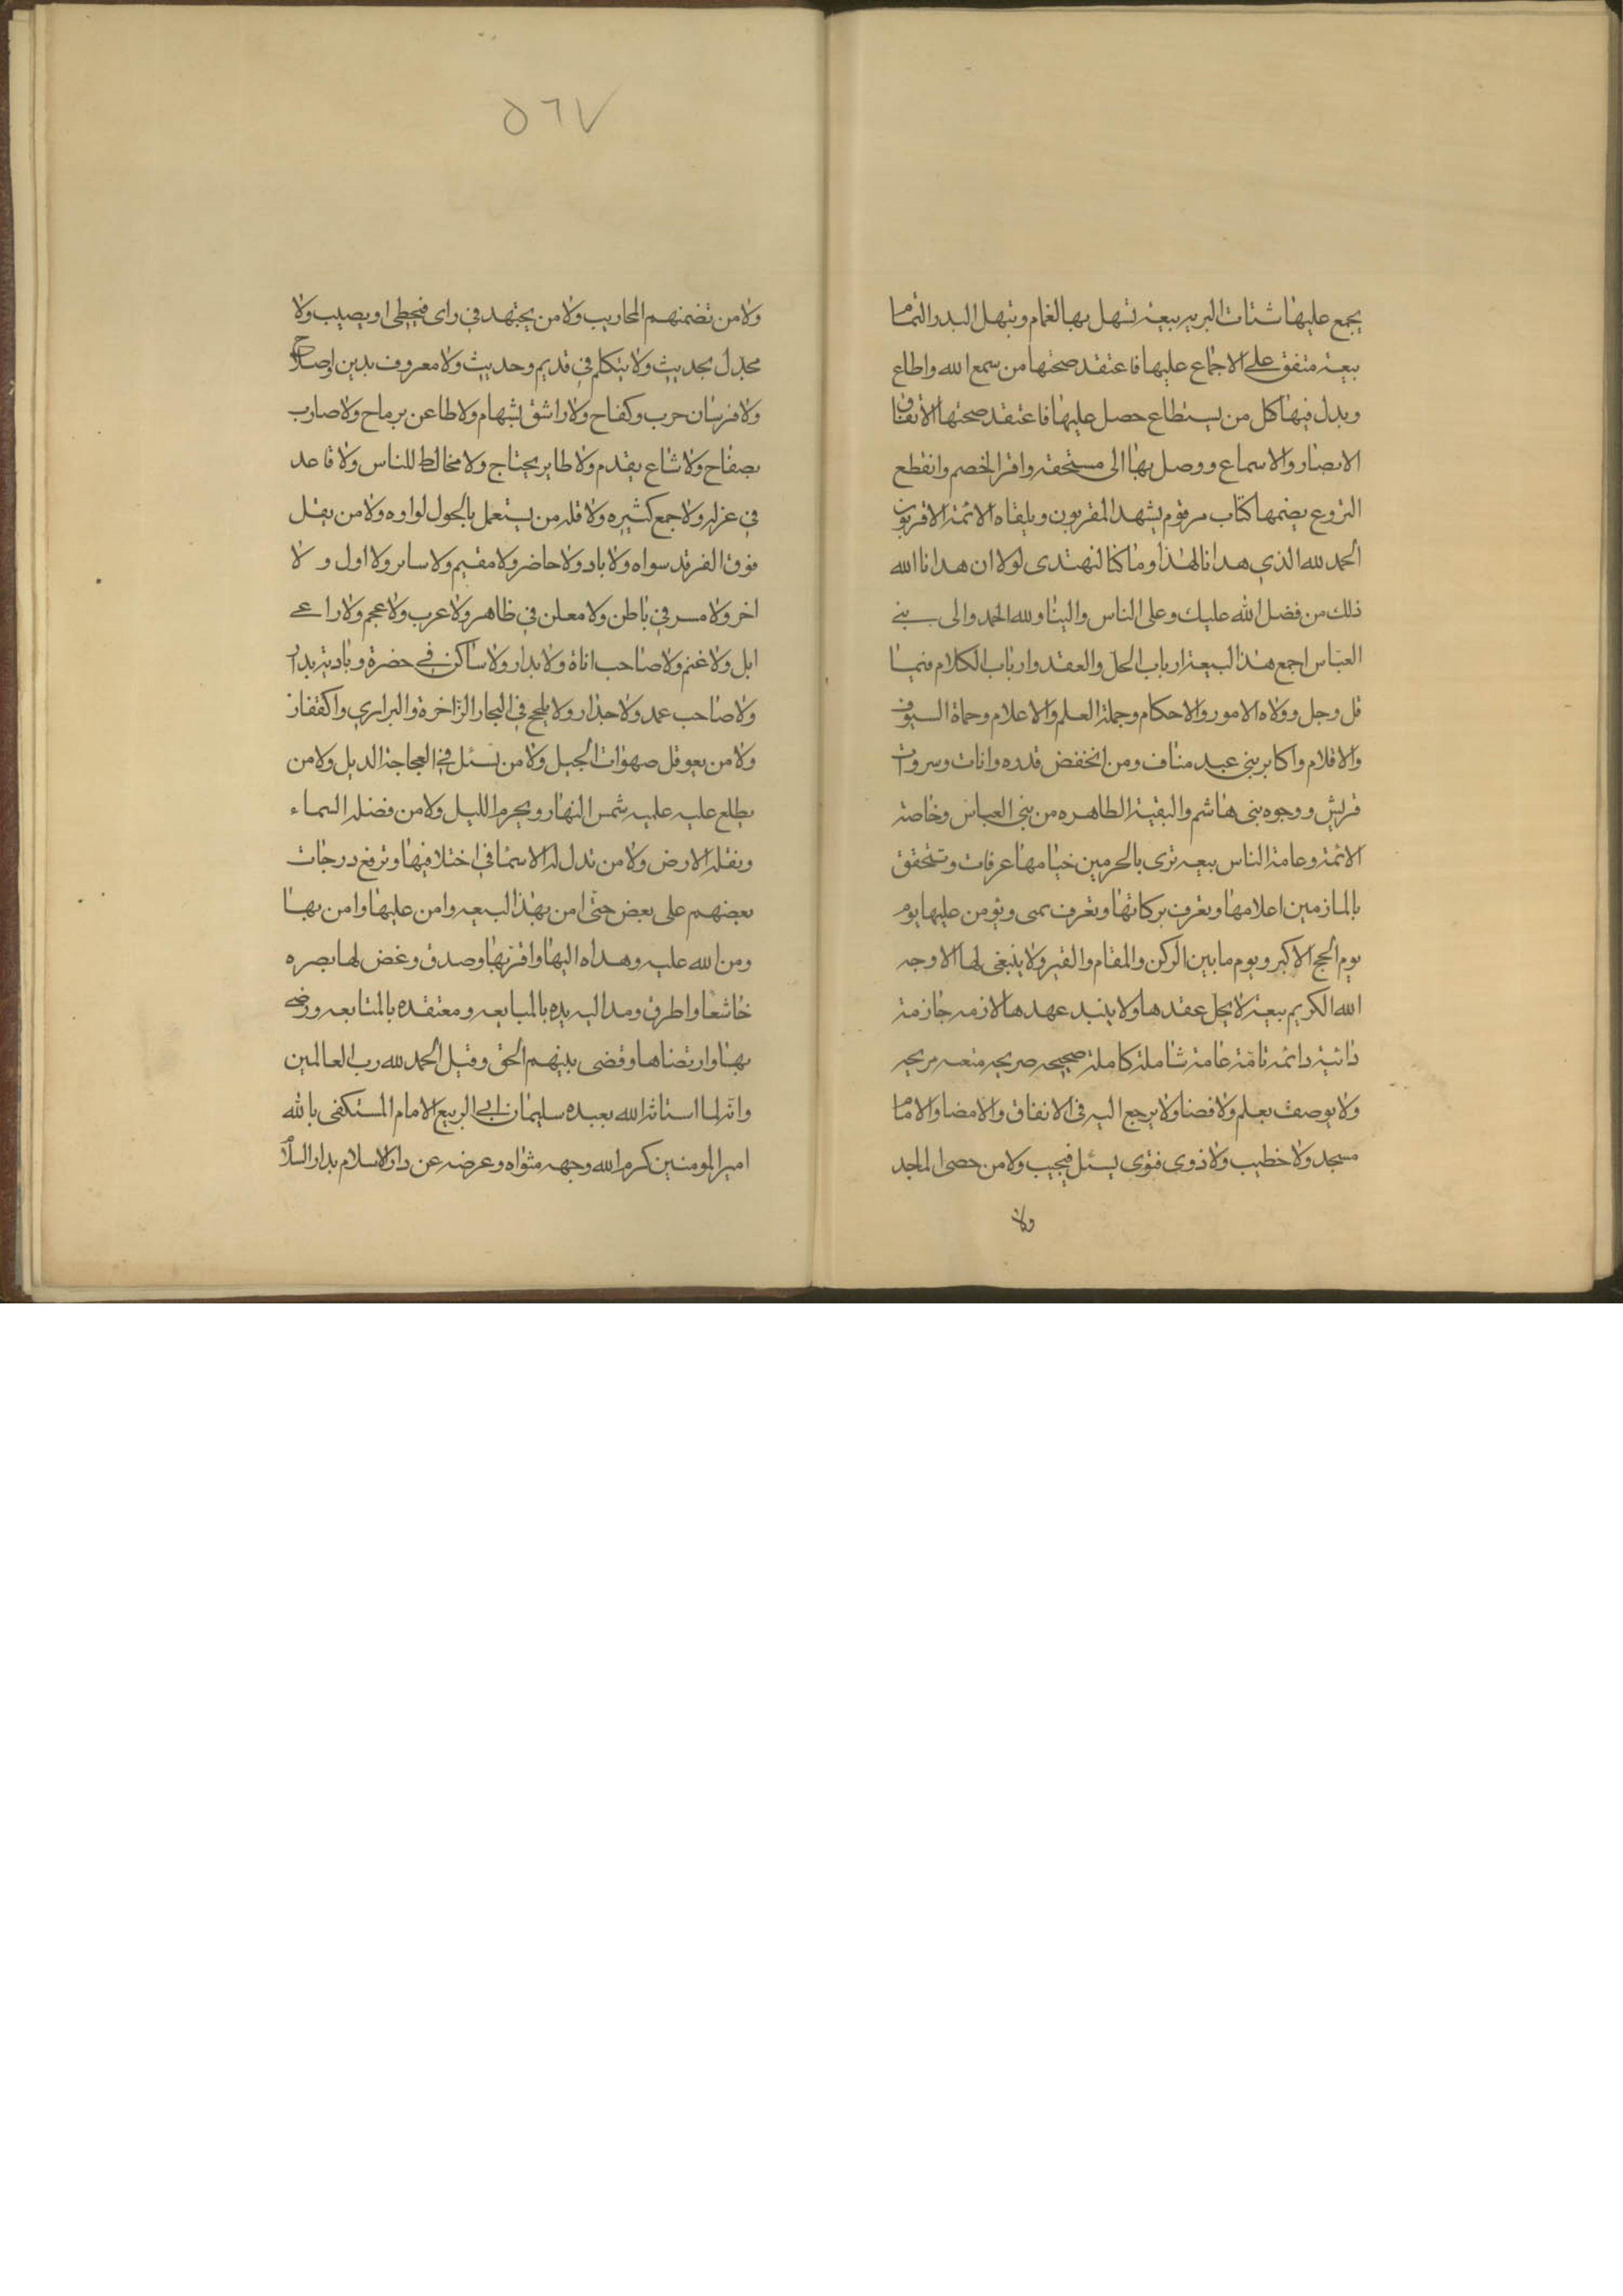 يجمع عليها شتات البريه بيعة تنهل بها الغمام ويتهلل البدر التمام
بيعة متفق على الاجماع عليها فاعتقد صحتها من سمع الله واطاع
وبدل فيها كل من يستطاع حصل عليها فاعتقد صحتها الاتفاق
الابصار والاسماع ووصل بها الى مستحقه واقر الخصم وانقطع
النزوع يضمها كتاب مرقوم يشهد المقربون ويلقاه الائمة الاقربون
الحمد لله الذي هدانا لهذا وما كنا لنهتدى لولا ان هدانا الله
ذلك من فضل الله عليك وعلى الناس والينا ولله الحمد والى بنى
العباس اجمع هذا البيعة ارباب الحل والعقد وارباب الكلام فيما
قل وجل وولاه الامور والاحكام وجملة العلم والاعلام وحماة السيوف
والاقلام واكابر بنى عبد مناف ومن انخفض قدره وانات وسروات
قريش ووجوه بنى هاشم والبقية الطاهره من بنى العباس وخاصة
الائمة وعامة الناس بيعه ترى بالحرمين خيامها عرفات وتتحقق
بالمازمين اعلامها وتعرف بركاتها وتعرف بمنى ويؤمن عليها يوم
يوم الحج الاكبر ويوم ما بين الركن والمقام والقبر ولا ينبغى لها الا وجه
الله الكريم بيعة لا يحل عقدها ولا ينبد عهدها لازمه جازمة
دائبة دائمه تامة عامة شاملة كاملة صحيحه صريحه متعبه مريحه
ولا يوصف بعلم ولا قضا ولا يرجع اليه فى الانفاق والامضا والامام
مسجد ولا خطيب ولا ذوى فتوى يسئل فيجيب ولا من حصى الماجد
ولا
٥٦٧
ولا من تضمنهم المحاريب ولا من يجتهد فى راى فيخطى او يصيب ولا
مجدل بحديث ولا يتكلم فى قديم وحديث ولا معروف بدين او صلاح
ولا فرسان حرب وكفاح ولا راشق بسهام ولا طاعن برماح ولا ضارب
بصفاح ولا ساع بقدم ولا طاير بجناح ولا مخالط للناس ولا قاعد
فى عزله ولا جمع كثيره ولا قله من يستعمل بالحول لواوه ولا من يقل
فوق الفرقد سواه ولا باد ولا حاضر ولا مقيم ولا ساير ولا اول ولا
اخر ولا مسر فى باطن ولا معلن فى ظاهر ولا عرب ولا عجم ولا راعى
ابل ولا غنم ولا صاحب اناة ولا بدار ولا ساكن فى حضرة وبادية بدار
ولا صاحب عمد ولا جدار ولا يلجج فى البحار الزاخرة والبرارى والقفار
ولا من يعوقل صهوات الجبل ولا من يسئل فى العجاجة الديل ولا من
يطلع عليه عليه شمس النهار ويحرم الليل ولا من فضله السماء
وتقله الارض ولا من تدل له الاسما فى اختلافها وترفع درجات
بعضهم على بعض حتى امن بهذا البيعه وامن عليها وامن بها
ومن الله عليه وهداه اليها واقر بها وصدق وغض لها بصره
خاشعا واطرق ومد اليه يده بالمبايعه ومعتقده بالمتابعه ورضى
بها وارتضاها وقضى بينهم الحق وقيل الحمد لله رب العالمين
وانه لما استاثر الله بعبده سليمان ابى الربيع الامام المستكفى بالله
امير المومنين كرم الله وجهه مثواه وعرضه عن دار الاسلام بدار السلام